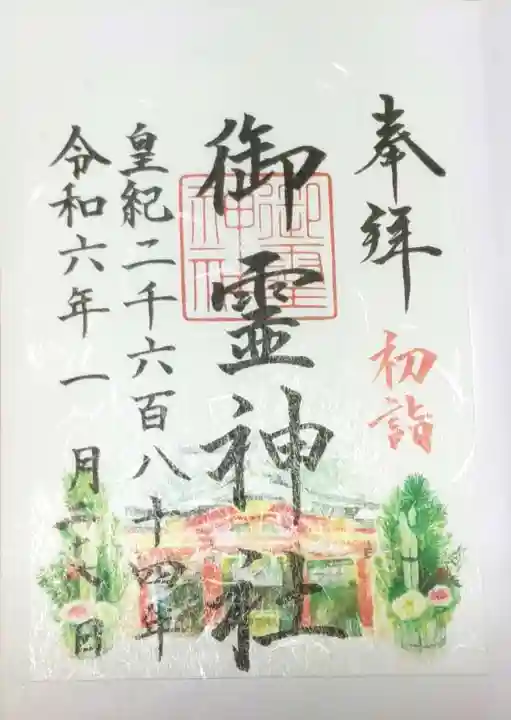 奉拜
初詣
御霊神社
御霊神社
皇紀二千六百八十四年
令和六年一月二八日